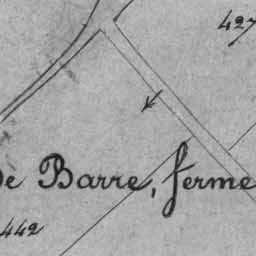 427
de Barre, ferme
442